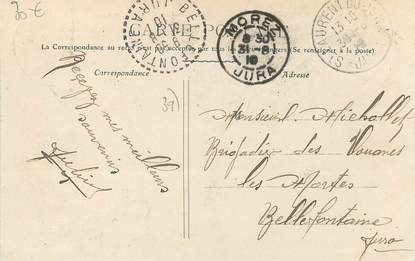 30€
CARTE POSTALE
BELLEFONTAINE
JURA
MOREZ
8 30
31-8
10
JURA
ST-LAURENT DU JURA
La Correspondance au recto n'est pas acceptée par tous les pays étrangers (Se renseigner à la poste)
Correspondance
Adresse
39)
Recevez mes meilleurs
souvenirs
Monsieur Michollet
Brigadier des Douanes
les Mortes
Bellefontaine
Jura